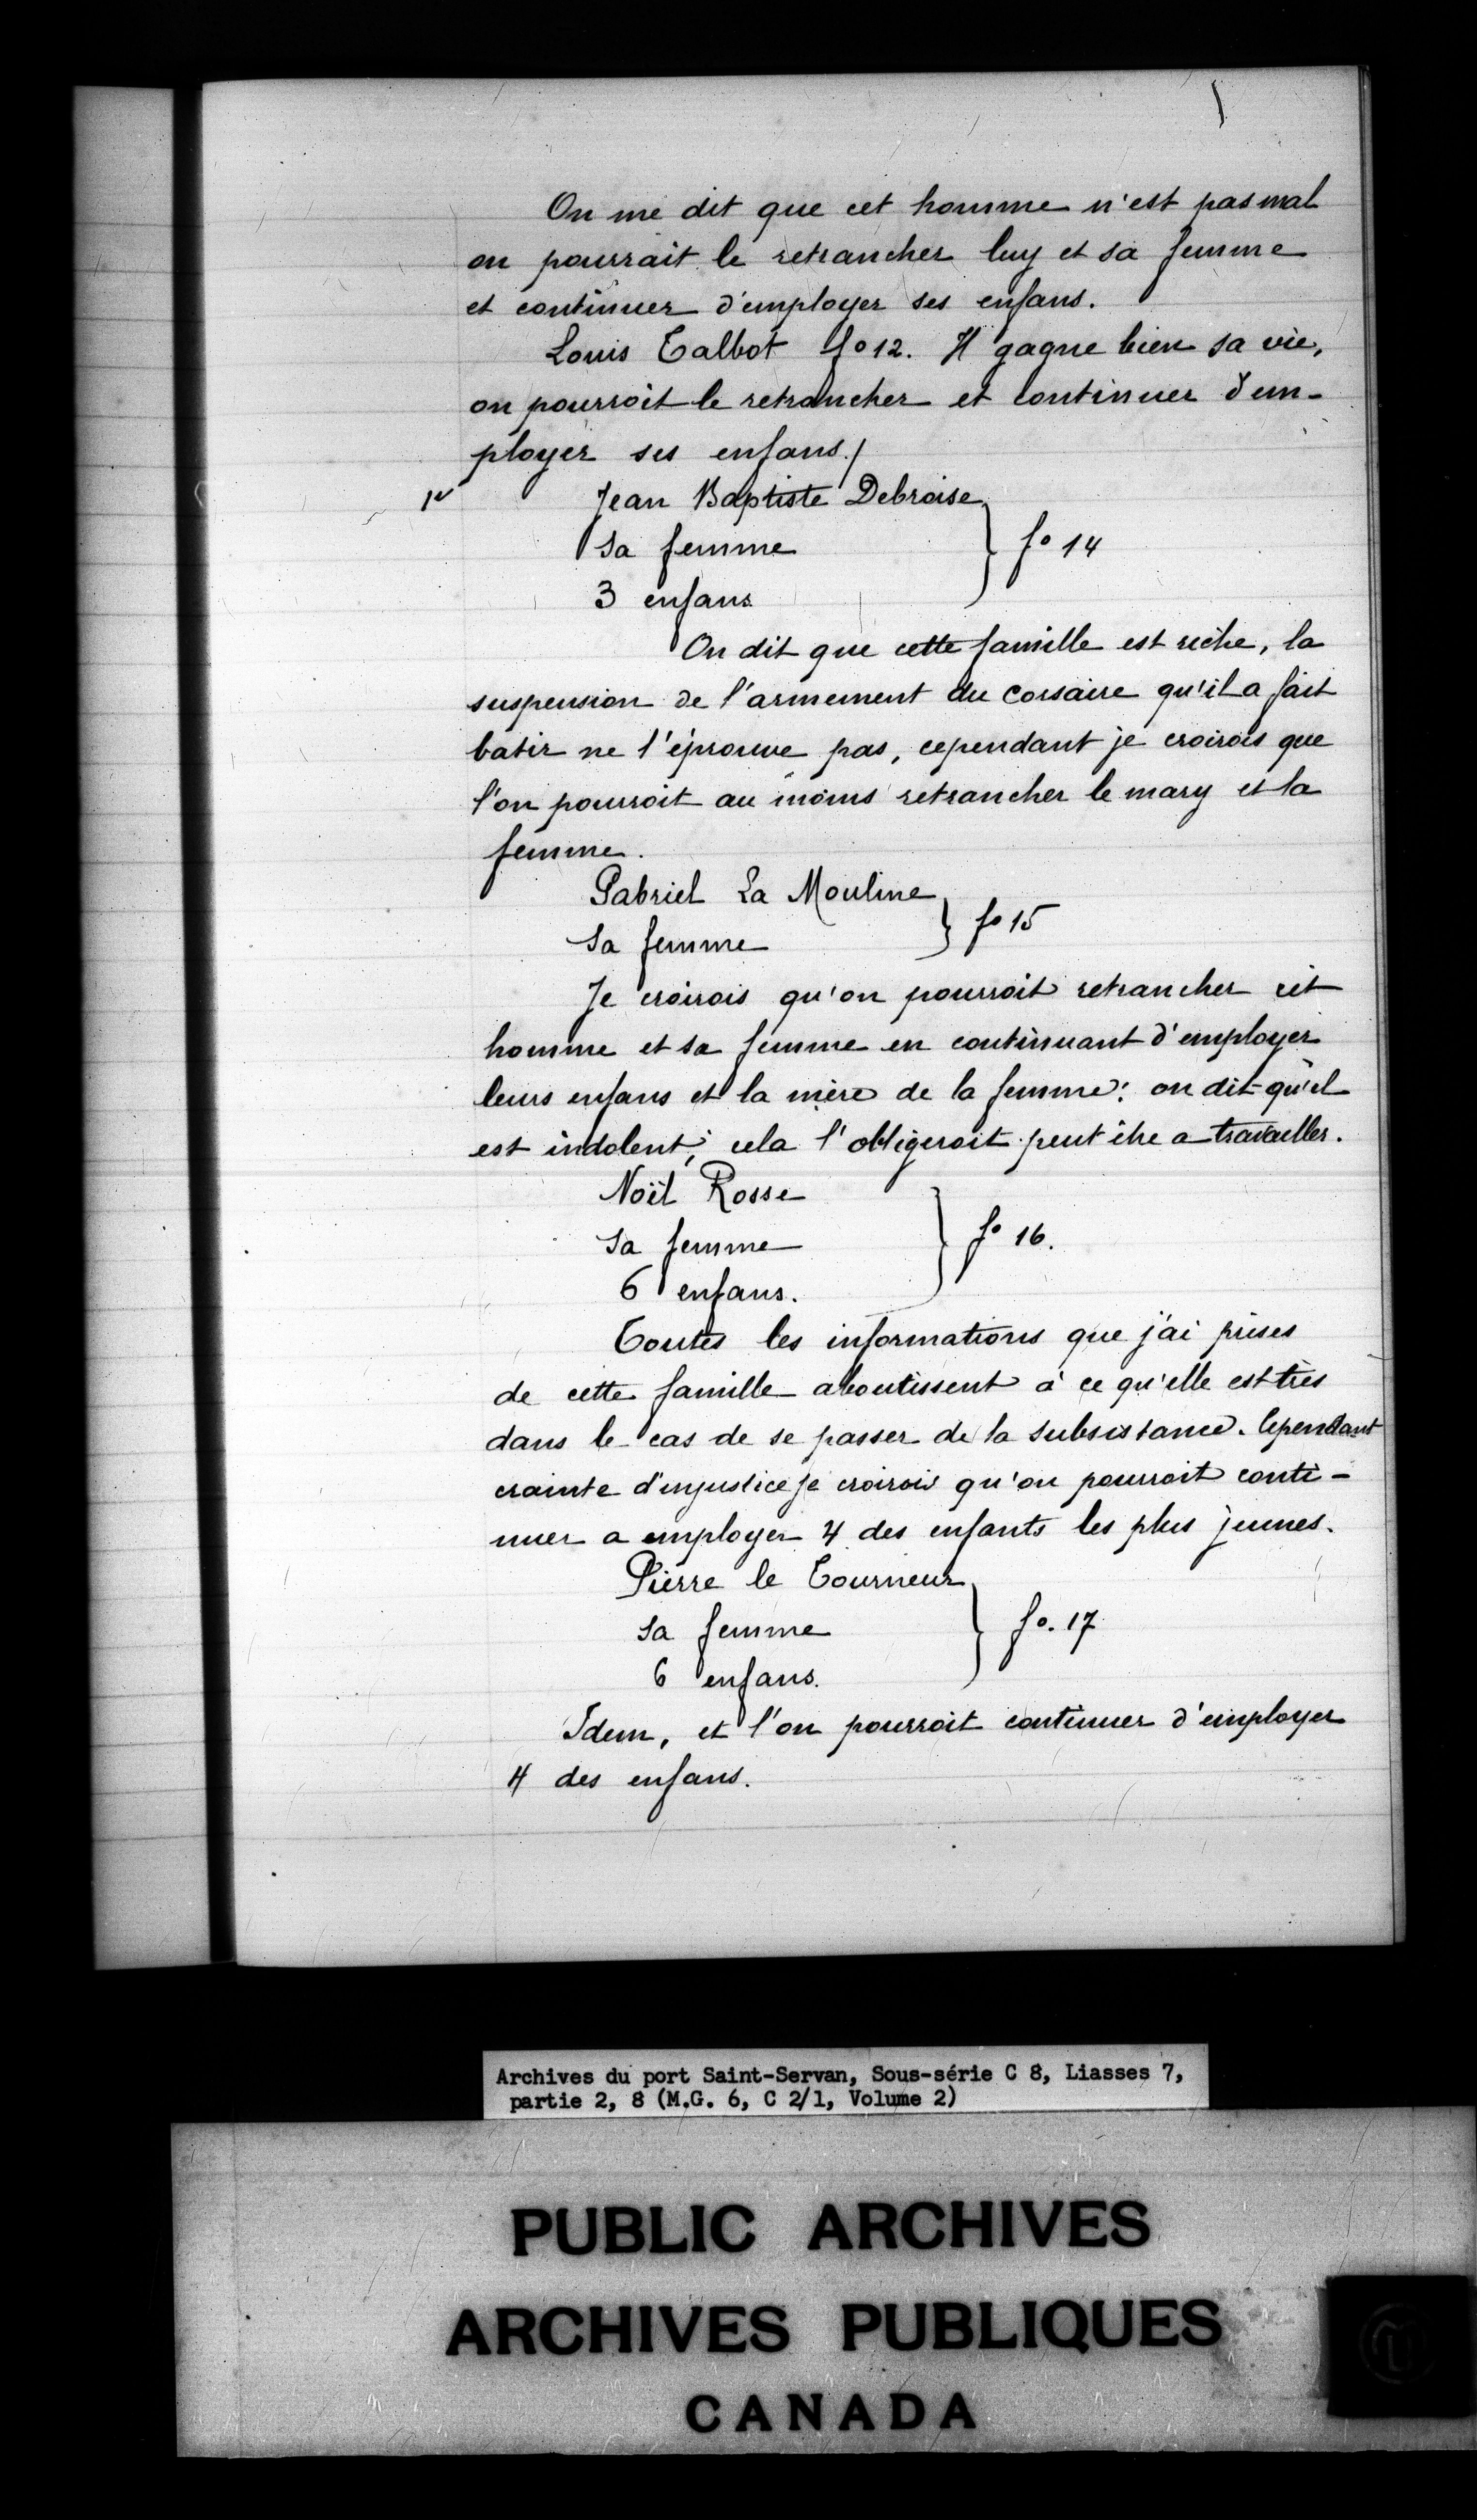 On me dit que cet homme n'est pas mal
on pourrait le retrancher luy et sa femme
et continuer d'employer ses enfans.
Louis Talbot fo 12. Il gagne bien sa vie,
on pourroit le retrancher et continuer d'em-
ployer ses enfans./
Jean Baptiste Debroise
sa femme } fo 14
3 enfans
On dit que cette famille est riche, la
suspension de l'armement du corsaire qu'il a fait
batir ne l'éprouve pas, cependant je croirois que
l'on pourroit au moins retrancher le mary et la
femme.
Gabriel La Mouline
sa femme } fo 15
Je croirois qu'on pourroit retrancher cet
homme et sa femme en continuant d'employer
leurs enfans et la mère de la femme: on dit qu'il
est indolent; cela l'obligeroit peut être a travailler.
Noël Rosse
sa femme } fo 16.
6 enfans.
Toutes les informations que j'ai prises
de cette famille aboutissent à ce qu'elle est très
dans le cas de se passer de la subsistance. Cependant
crainte d'injustice je croirois qu'on pourroit conti-
nuer a employer 4 des enfants les plus jeunes.
Pierre le Tourneur
sa femme } fo. 17
6 enfans.
Idem, et l'on pourroit continuer d'employer
4 des enfans.
Archives du port Saint-Servan, Sous-série C 8, Liasses 7,
partie 2, 8 (M.G. 6, C 2/1, Volume 2)
PUBLIC ARCHIVES
ARCHIVES PUBLIQUES
CANADA